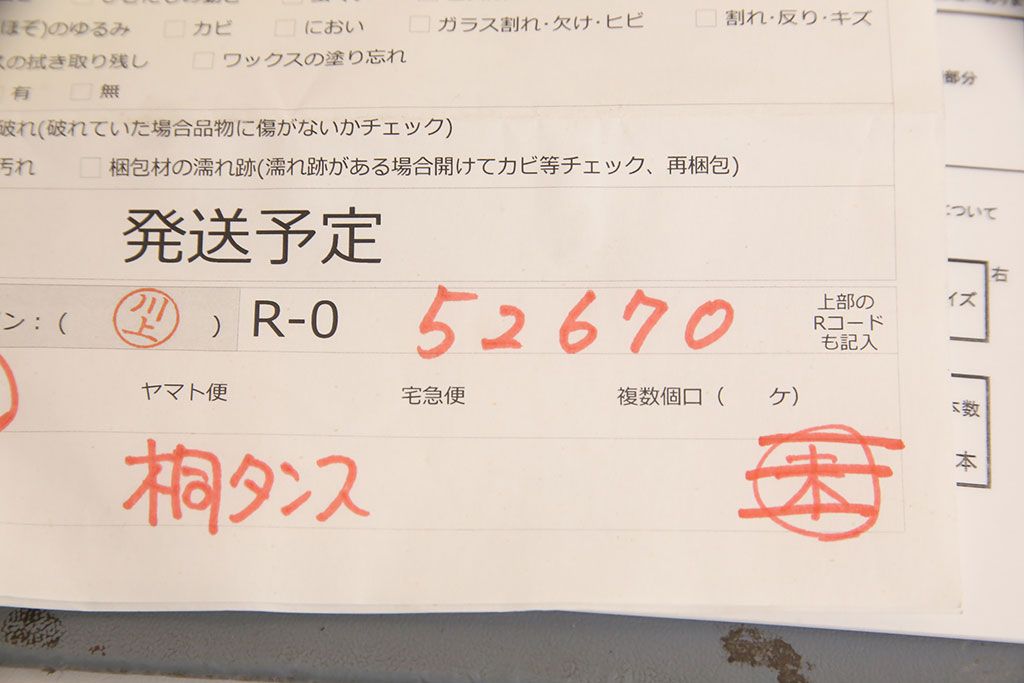 ほぞ)のゆるみ □ カビ □ におい □ ガラス割れ・欠け・ヒビ □ 割れ・反り・キズ
スの拭き取り残し □ ワックスの塗り忘れ
有 □ 無
破れ(破れていた場合品物に傷がないかチェック)
汚れ □ 梱包材の濡れ跡(濡れ跡がある場合開けてカビ等チェック、再梱包)
発送予定
ン：( 川上 ) R-0 52670 上部の
Rコード
も記入
ヤマト便 宅急便 複数個口（ ケ）
桐タンス
部分
について
右
イズ
本数
本